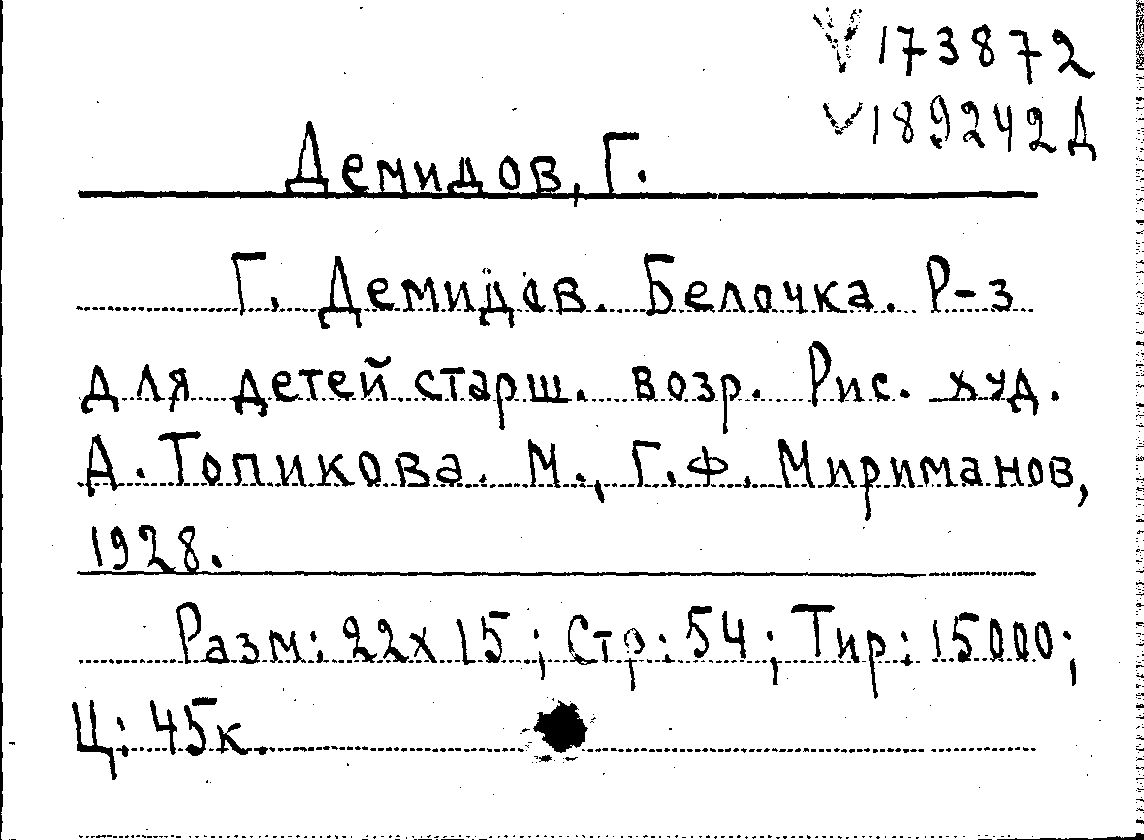 V173872
V189242Д
Демидов, Г.
Г. Демидов. Белочка. Р-з
для детей старш. возр. Рис. худ.
А. Топикова. М., Г.Ф. Мириманов,
1928.
Разм: 22х15; Стр: 54; Тир: 15000;
Ц: 45к.